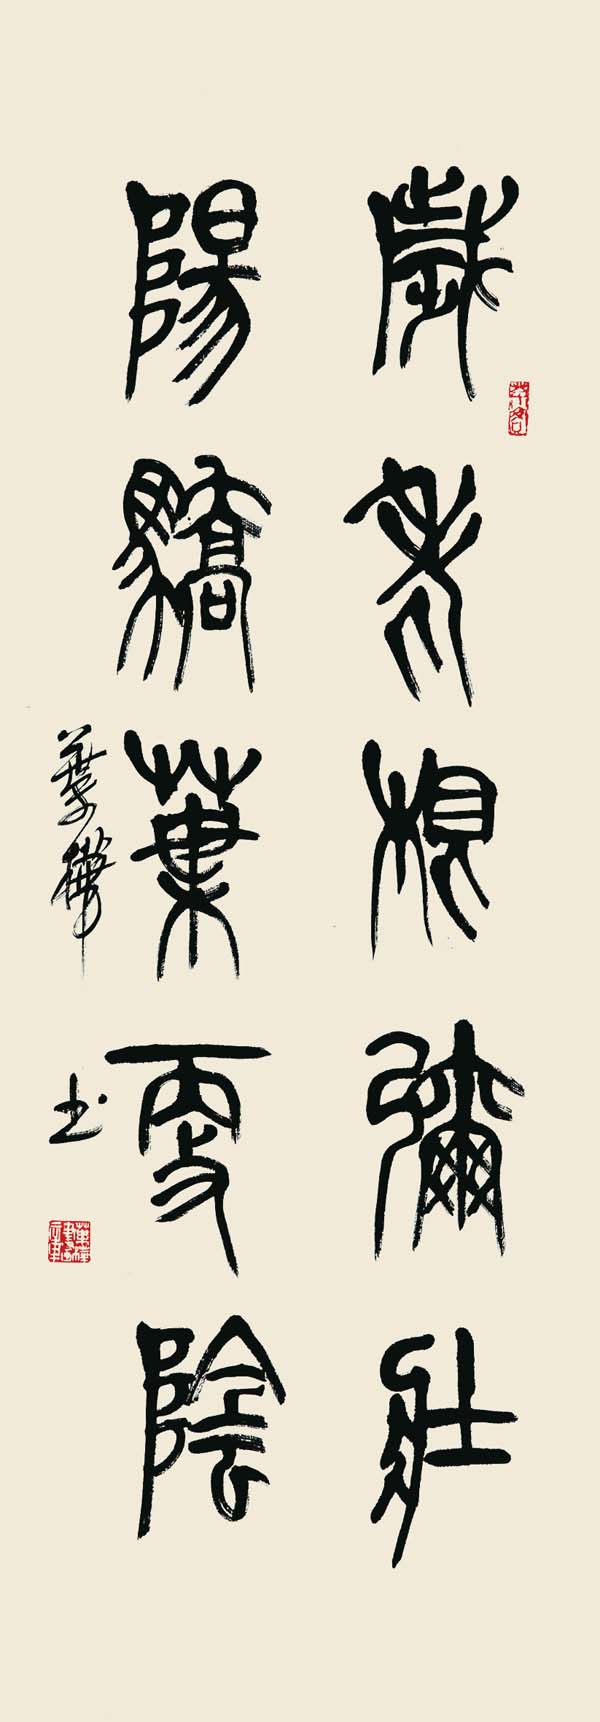 歲老根彌壯
陽驕葉更陰
葉樺
书